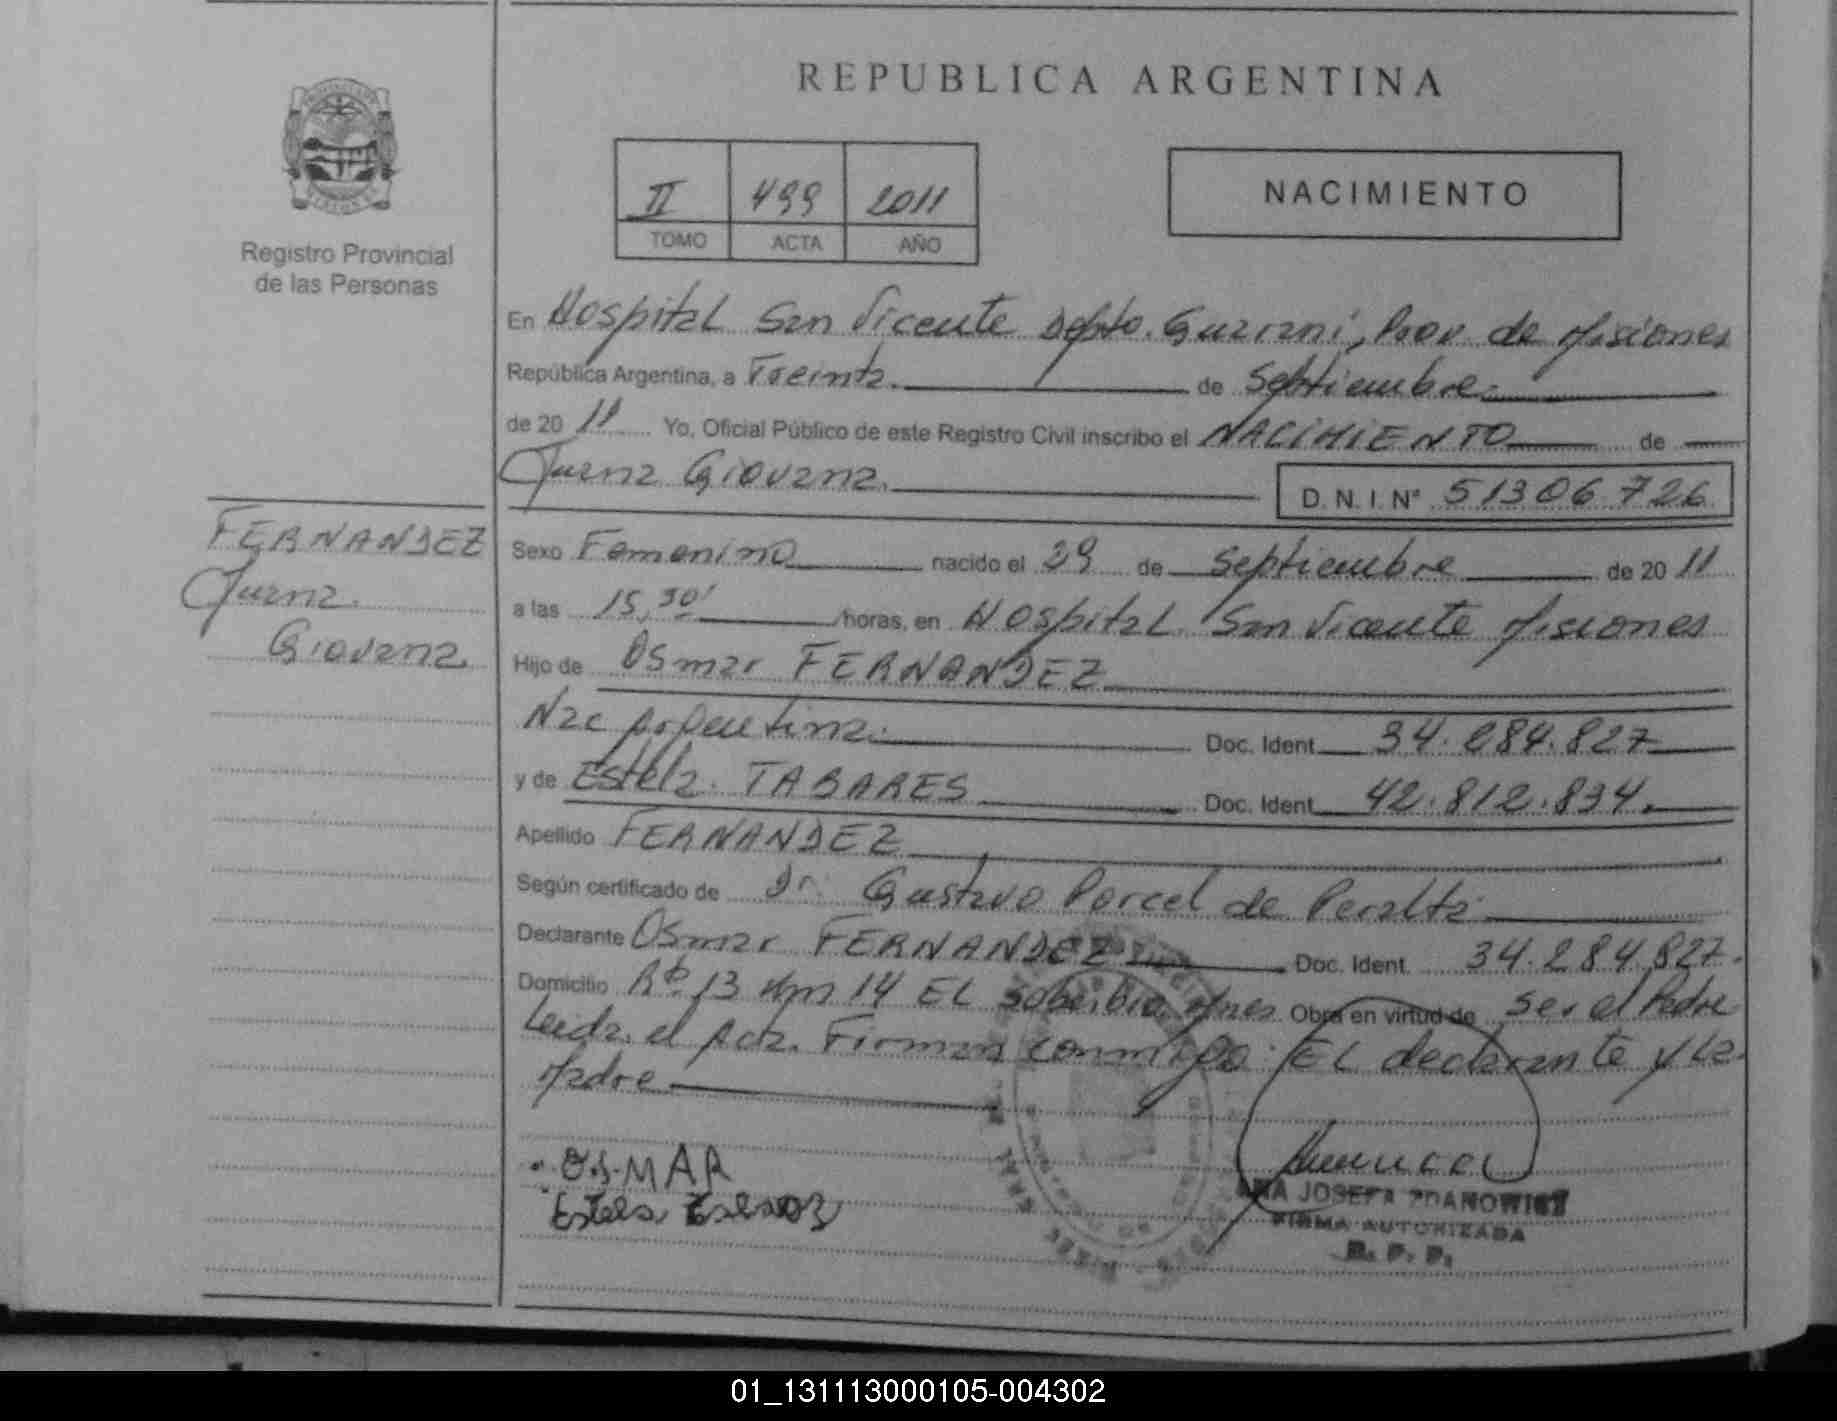 REPUBLICA ARGENTINA
Registro Provincial
de las Personas
II 499 2011
TOMO ACTA AÑO
NACIMIENTO
En Hospital San Vicente Depto. Guarani, Prov. de Misiones
República Argentina, a Treinta. de Septiembre
de 20 11 Yo, Oficial Público de este Registro Civil inscribo el NACIMIENTO de
Juana Giovana.
D. N. I. Nº 51306.726
FERNANDEZ
Juana.
Giovana.
Sexo Femenino nacido el 29 de Septiembre de 20 11
a las 15,30' /horas, en Hospital San Vicente Misiones
Hijo de Osmar FERNANDEZ
Nac Argentina. Doc. Ident. 34.284.827
y de Estela. TABARES Doc. Ident. 42.812.834.
Apellido FERNANDEZ
Según certificado de Dr Gustavo Porcel de Peralta
Declarante Osmar FERNANDEZ Doc. Ident. 34.284.827.
Domicilio Rta 13 Km 14 EL Soberbio, Mnes Obra en virtud de ser el Padre
Leida el Acta. Firman conmigo: EL declarante y La
Madre
OSMAR
Estela
ANA JOSEFA ZDANOWICZ
FIRMA AUTORIZADA
R. P. P.
01_131113000105-004302